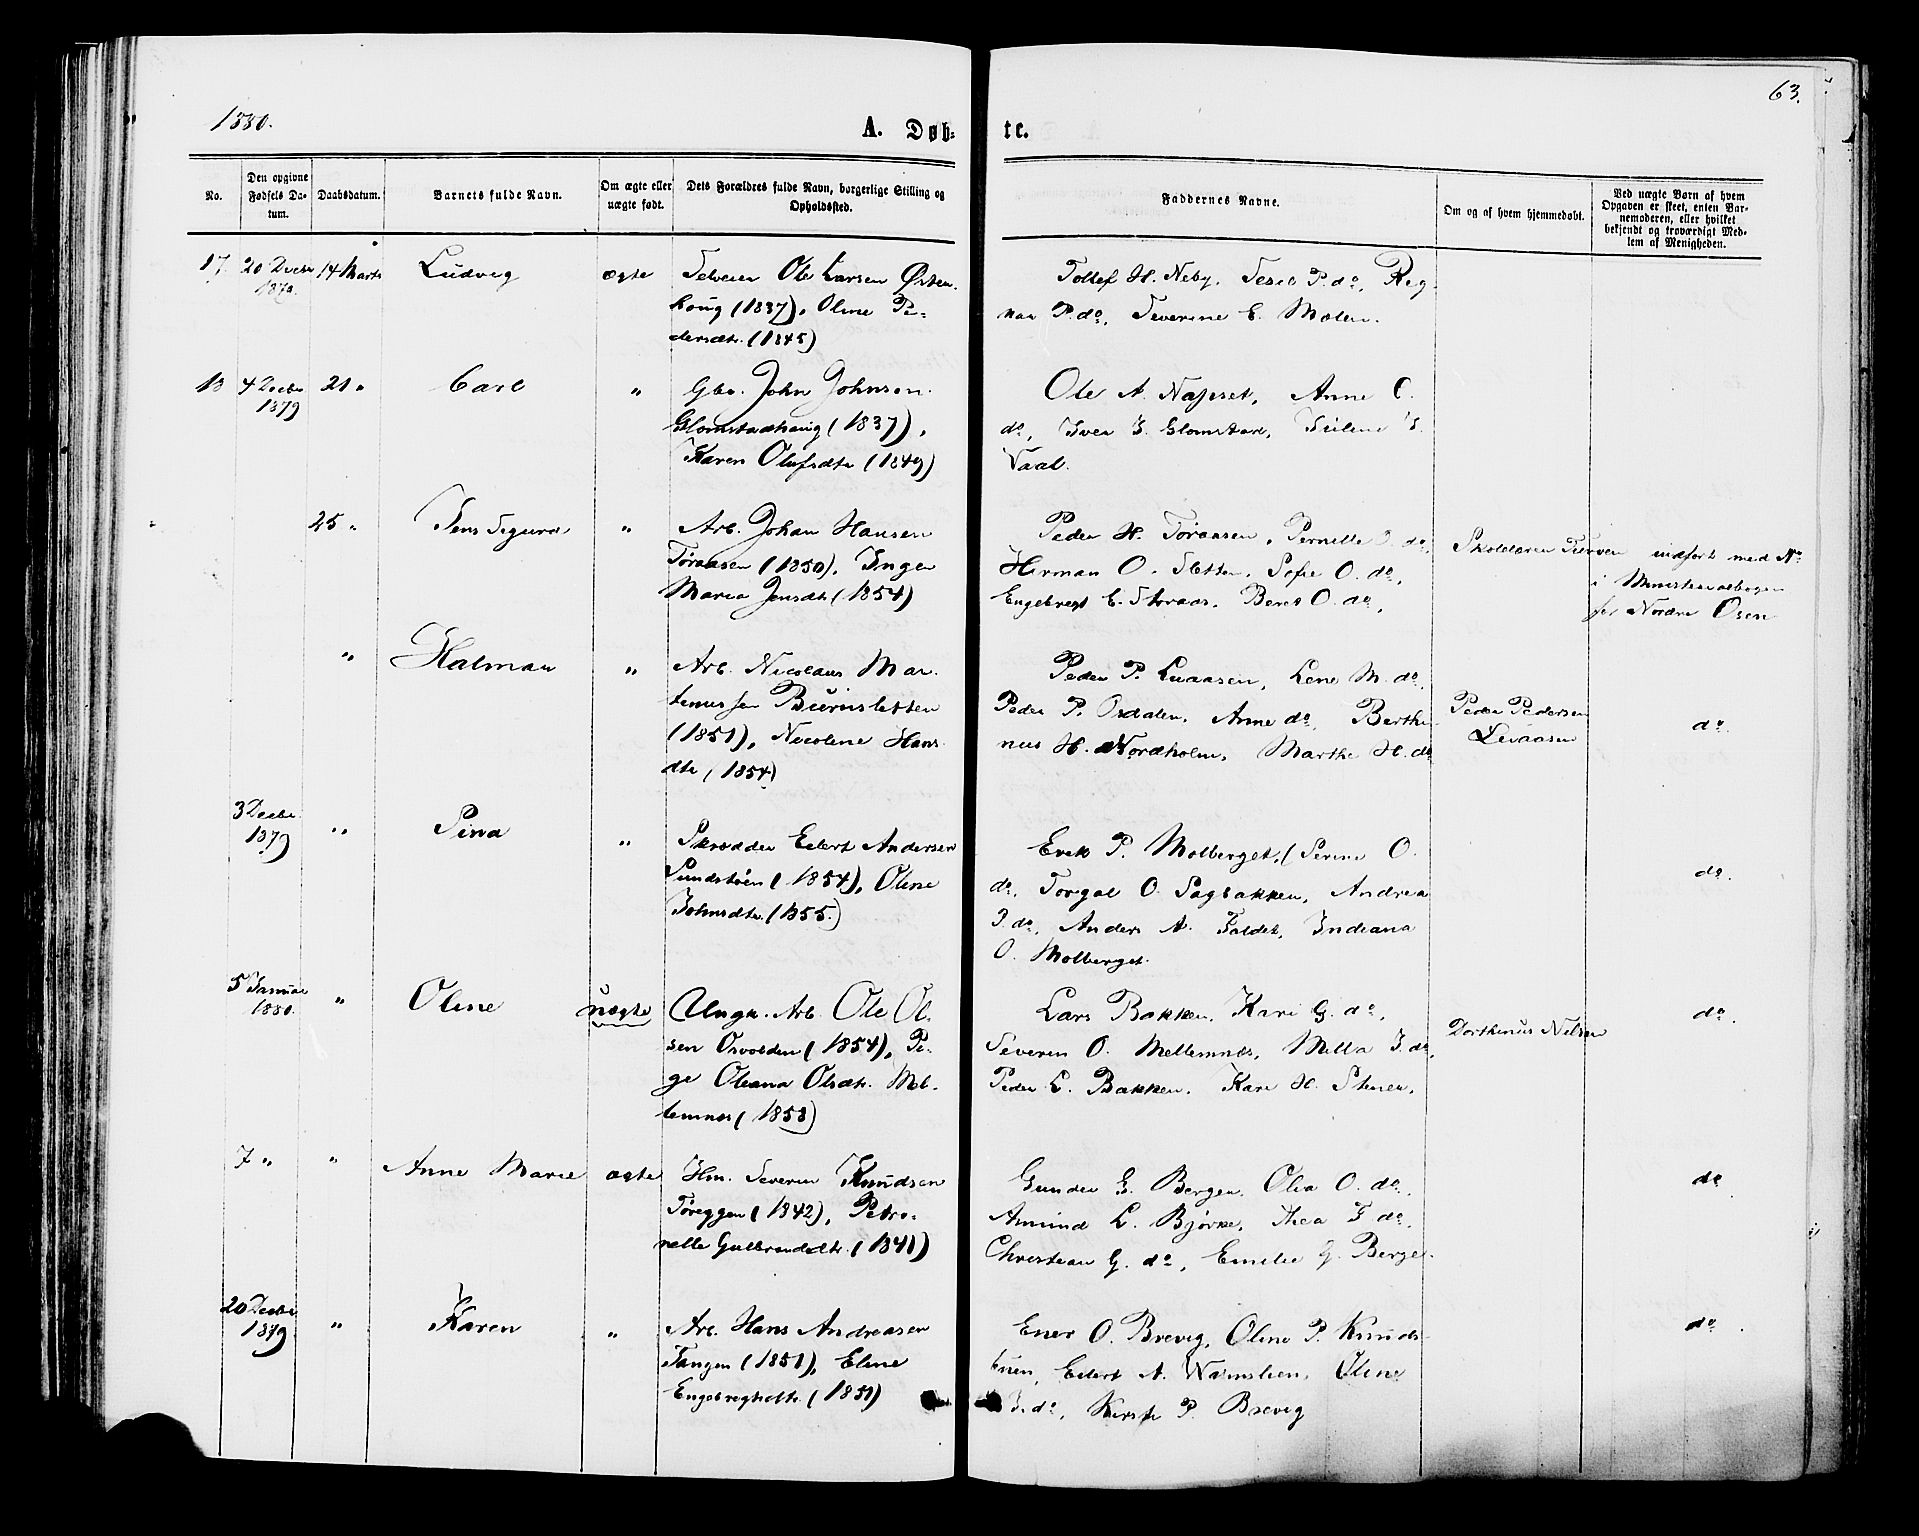 1880.
A. Døb-
te.
63.
No.
Den opgivne
Fødsels Da-
tum.
Daabsdatum.
Barnets fulde Navn.
Om ægte eller
uægte født.
Dets Forældres fulde Navn, borgerlige Stilling og
Opholdssted.
Faddernes Navne.
Om og af hvem hjemmedøbt.
Ved uægte Børn af hvem
Opgaven er skeet, enten Bar-
nemoderen, eller hvilket
bekjendt og troværdigt Med-
lem af Menigheden.
17. 20 Decbr 14 Marts Ludvig ægte Selveier Ole Larsen Østen-
1879.
haug (1837), Oline Pe-
dersdtr. (1845)
Tollef H. Neby, P. do, Rag-
P. do, Severine E. Moten.
18 4 Decbr 21 " Carl " Gbr. John Johnsen
1879
Glomstadhaug (1837),
Karen Olufsdtr (1849)
Ole A. Næsset, Anne C.
do, Iver J. Glomstad,
25 " Jens Sigurd " Arb. Johan Hansen
Töraasen (1850), Inger
Maria Jensdtr (1854)
Peder H. Töraasen, Pernille J. do,
Herman O. Sletten, Sofie O. do,
Engebregt E. Storaas, Beret O. do,
Skolelærer indført med No
i Ministerialbogen
for Nordre Osen
" Halman " Arb. Nicolaus Mar-
tinussen Björnsletten
(1851), Nicoline Hans-
dtr (1854)
Peder P. Lvaasen, Lene M. do,
Peder P. Osdalen, Anne do, Berthi-
nus H. Nordholm, Marthe H. do
Peder Pedersen
Lvaasen
do.
3 Decbr.
1879 " Sina " Skrædder Eilert Andersen
Sundstöen (1854), Oline
Johnsdtr. (1855.)
Erik P. Molberget, Serine O.
do, Torgal O. Sagbakken, Andrea
J. do, Anders A. Faldet, Indiana
O. Molberget.
do.
5 Januar
1880. " Oline uægte Ungk. Arb. Ole Ol-
sen Osvolden (1854), Pi-
ge Oleana Olsdtr. Mel-
lemnes (1858)
Lars Bakken, Kari G. do,
Severin O. Mellemnes, Mella J. do,
Peder L. Bakken, Kari H. Stenen.
Dorthenus Nilsen
do.
7 " " Anne Marie ægte Hm. Severin Knudsen
Töreggen (1842), Petro-
nelle Gulbrandsdtr. (1841)
Gunder G. Bergen, Olia O. do,
Amund L. Bjørke, Thea F. do,
Christian G. do, Emilie G. Berge.
do
20 Decbr
1879. " Karen " Arb. Hans Andreasen
Tangen (1851), Eline
Engebregtsdtr. (1851)
Ener O. Brevig, Oline P. Knuds-
tuen, Eilert A. Oline
J. do, Kersti P. Brevig
do.